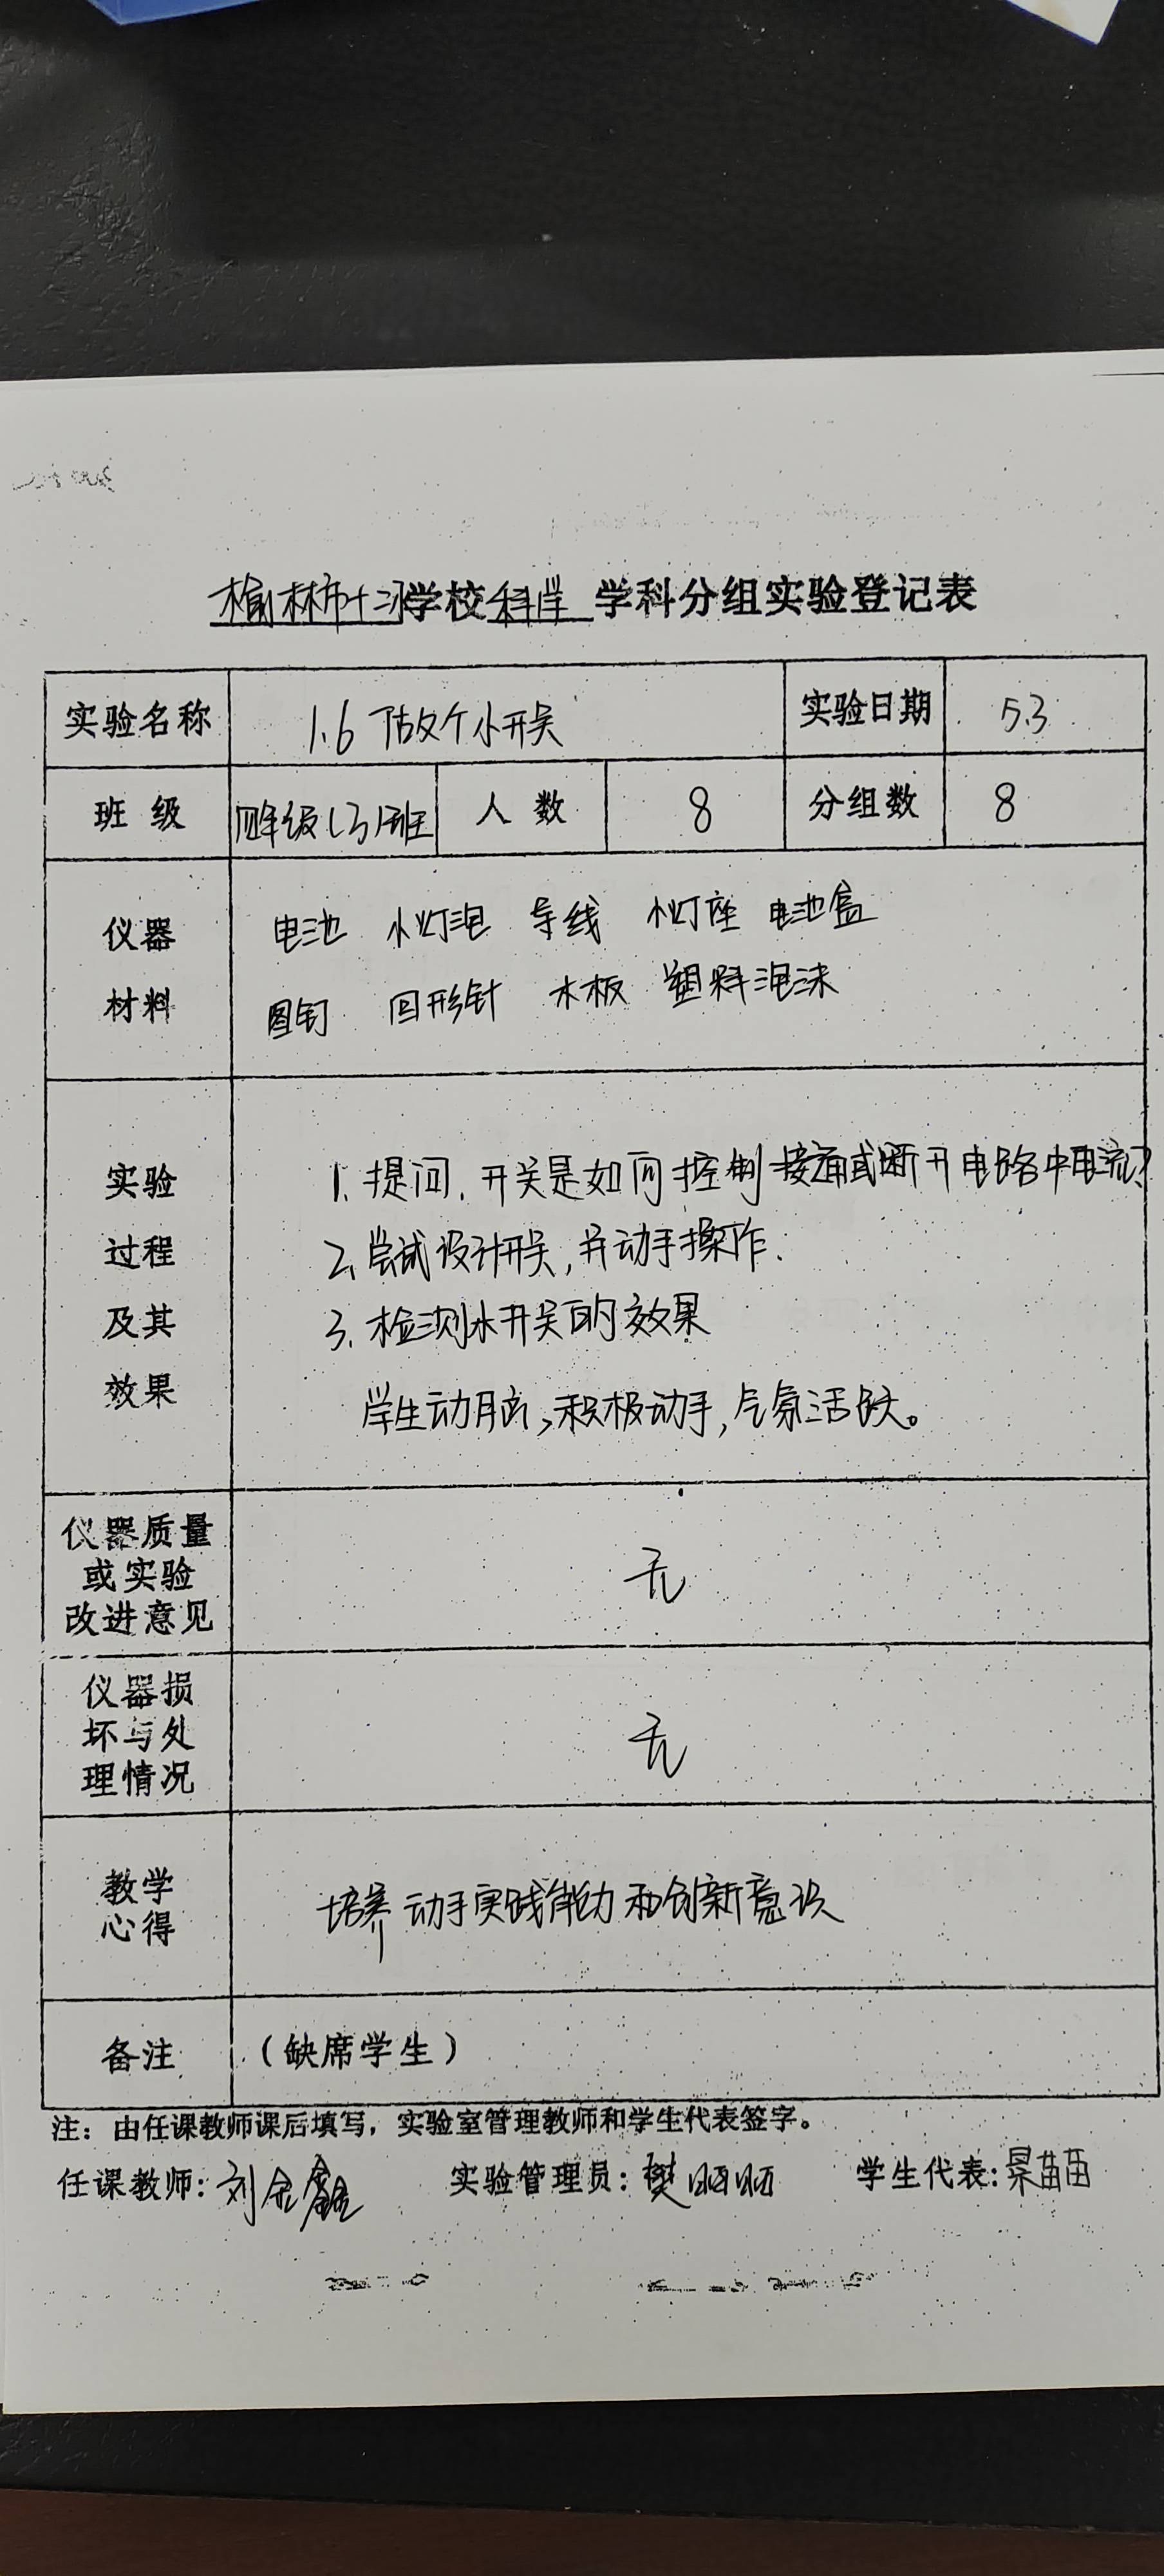 榆林市十二小学校科学 学科分组实验登记表
实验名称 1.6 做个小开关 实验日期 5.3
班 级 四年级(3)班 人 数 8 分组数 8
仪器
材料
电池 小灯泡 导线 小灯座 电池盒
图钉 回形针 木板 塑料泡沫
实验
过程
及其
效果
1. 提问,开关是如何控制接通或断开电路中电流?
2. 尝试设计开关,并动手操作.
3. 检测小开关的效果
学生动脑,积极动手,气氛活跃。
仪器质量
或实验
改进意见
无
仪器损
坏与处
理情况
无
教学
心得
培养动手实践能力和创新意识
备注 (缺席学生)
注:由任课教师课后填写,实验室管理教师和学生代表签字。
任课教师: 刘金鑫 实验管理员: 樊 学生代表: 景苗苗